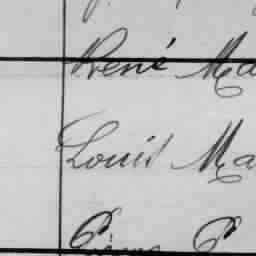 René Ma
Louis Ma